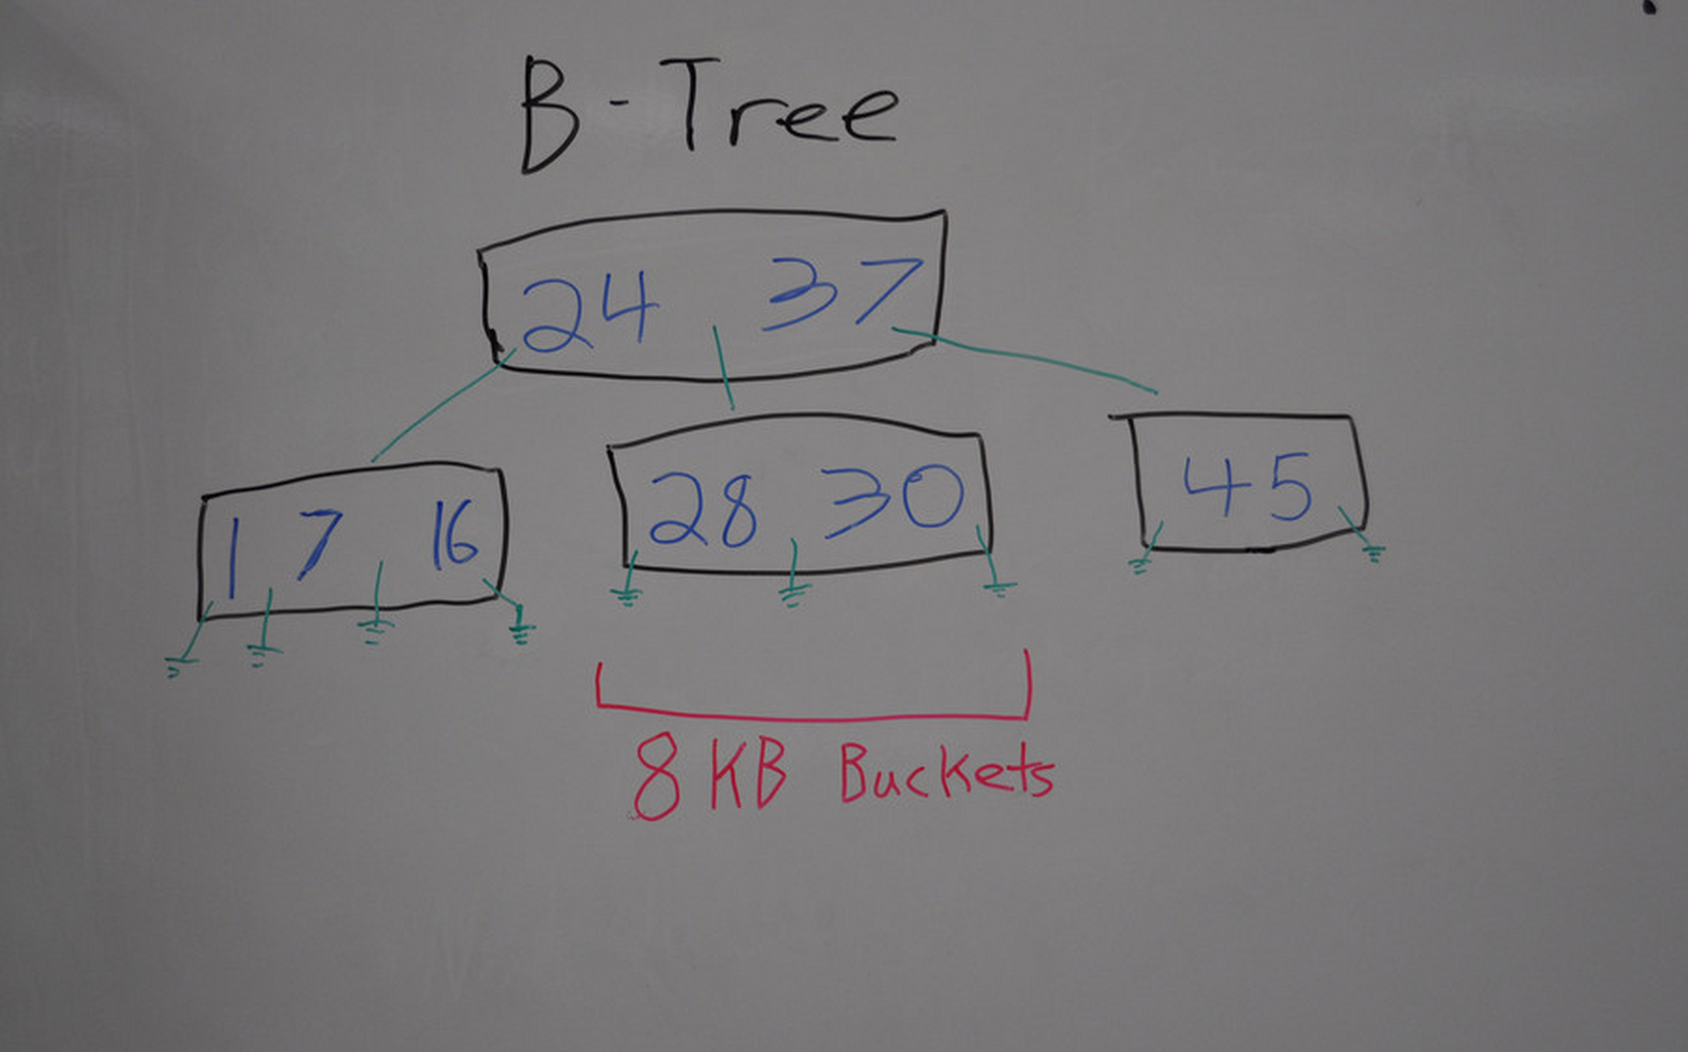 B-Tree
24 37
1 7 16
28 30
45
8 KB Buckets